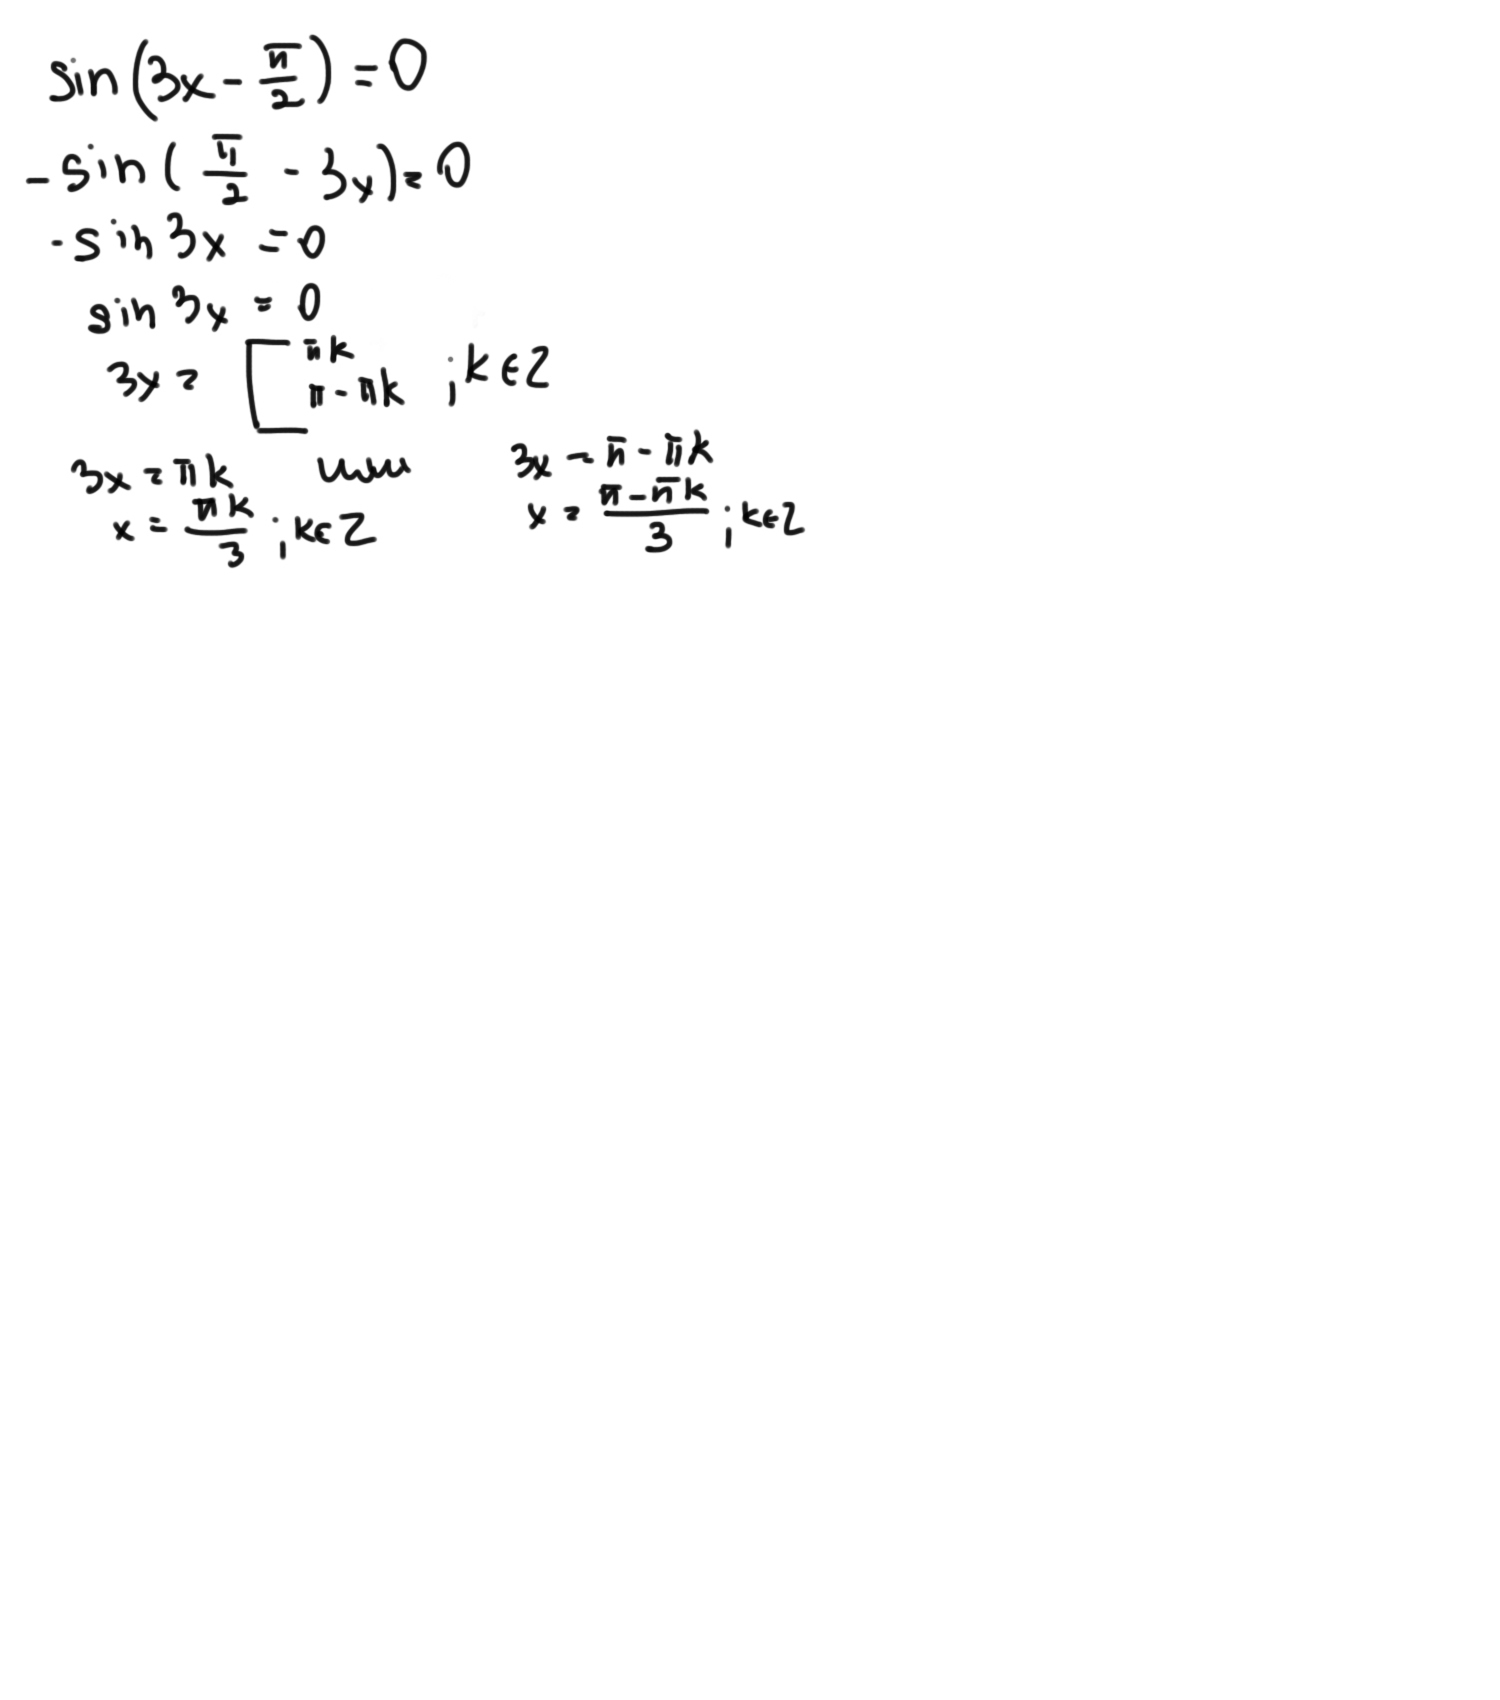 sin(3x - π/2) = 0
-sin(π/2 - 3x) = 0
-sin 3x = 0
sin 3x = 0
3x = [ πk ; π - πk ; k ∈ Z
3x = πk или 3x = π - πk
x = πk/3 ; k ∈ Z x = (π - πk)/3 ; k ∈ Z